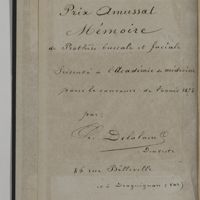 Prix Amussat
Mémoire
de Prothèse buccale et faciale
Présenté à l'Académie de médecine
pour le concours de l'année 187
par
Delalain
Dentiste
86 rue Belleville
et à Draguignan (Var)